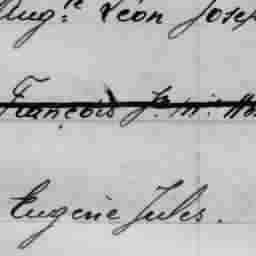 Aug.te Léon Josep
François J.h M.
Eugène Jules.